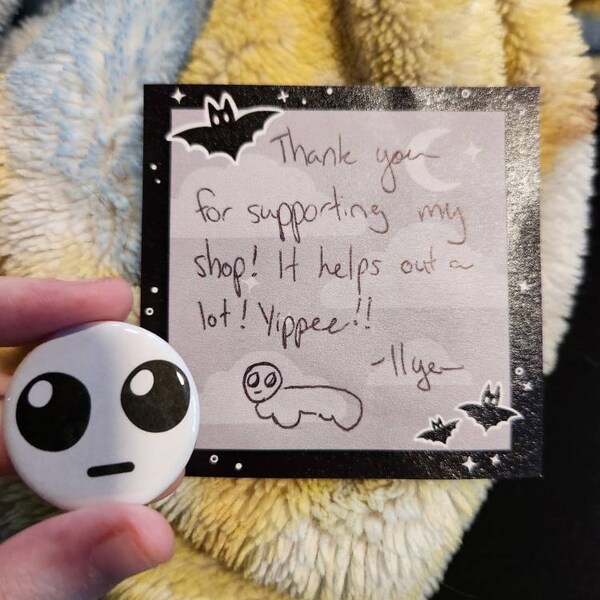 Thank you
for supporting my
shop! It helps out a
lot! Yippee!!
-Ilye